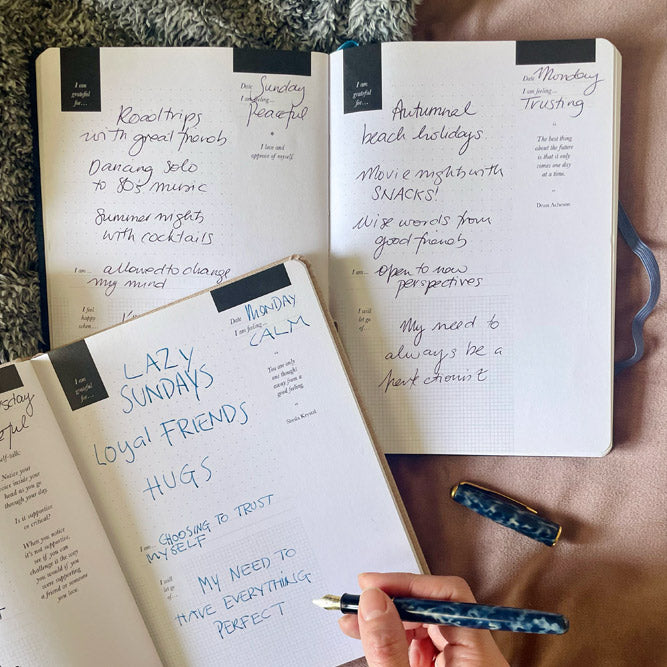 I am
grateful
for…
Date Sunday
I am feeling…
Peaceful
I love and
approve of myself.
Roadtrips
with great friends
Dancing solo
to 80s music
Summer nights
with cocktails
I am… allowed to change
my mind
I feel
happy
when…
I am
grateful
for…
Date Monday
I am feeling…
Trusting
“
The best thing
about the future
is that it only
comes one day
at a time.
”
Dean Acheson
Autumnal
beach holidays
Movie nights with
SNACKS!
Wise words from
good friends
I am… open to new
perspectives
I will
let go
of…
My need to
always be a
perfectionist
self-talk.
Notice your
voice inside your
head as you go
through your day.
Is it supportive
or critical?
When you notice
it's not supportive,
see if you can
challenge it the way
you would if you
were supporting
a friend or someone
you love.
I am
grateful
for…
Date MONDAY
I am feeling…
CALM
“
You are only
one thought
away from a
good feeling.
”
Sheila Krystal
LAZY
SUNDAYS
Loyal FRIENDS
HUGS
I am… CHOOSING TO TRUST
MYSELF
I will
let go
of…
MY NEED TO
HAVE EVERYTHING
PERFECT